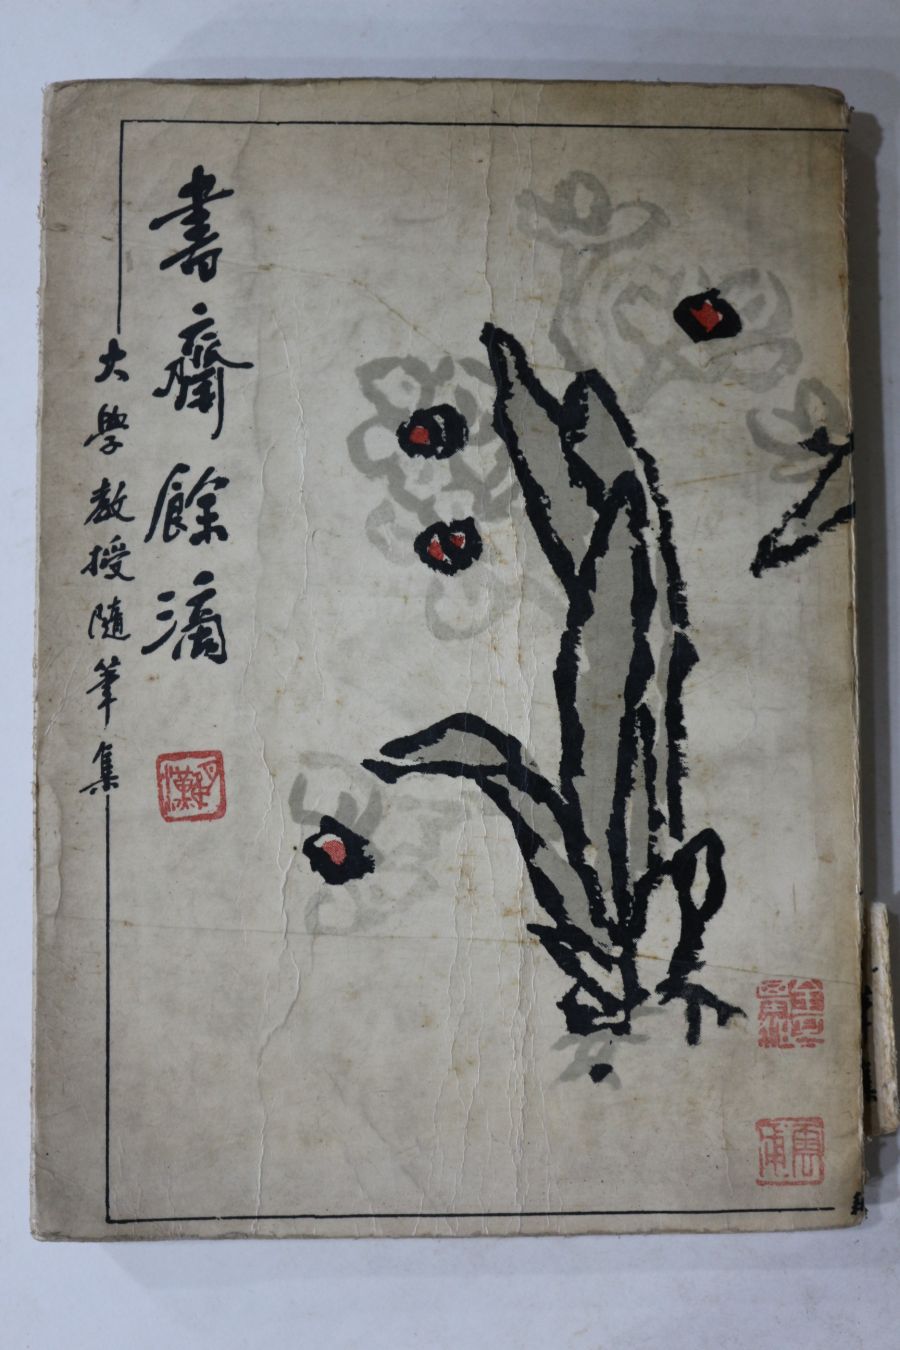 書齋餘滴
大學教授隨筆集